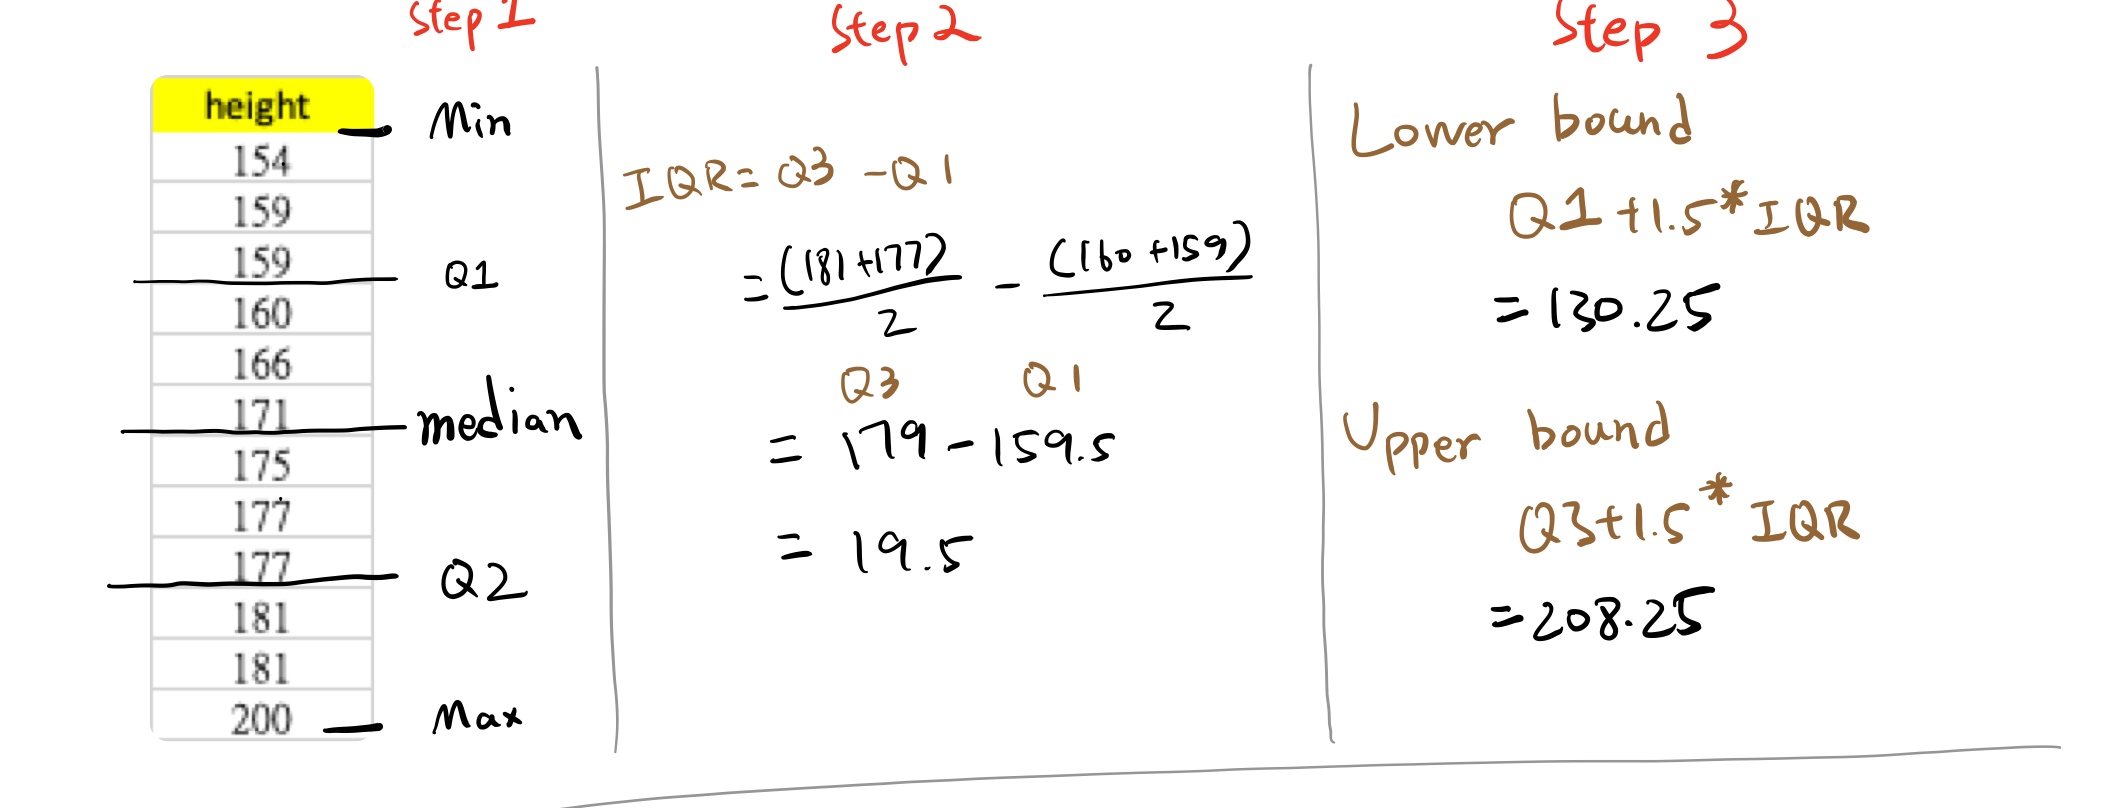 Step 1
height
Min
154
159
159
Q1
160
166
171
median
175
177
177
Q2
181
181
200
Max
Step 2
IQR= Q3 -Q1
= (181+177) / 2 - (160+159) / 2
Q3 Q1
= 179 - 159.5
= 19.5
Step 3
Lower bound
Q1+1.5*IQR
=130.25
Upper bound
Q3+1.5*IQR
=208.25